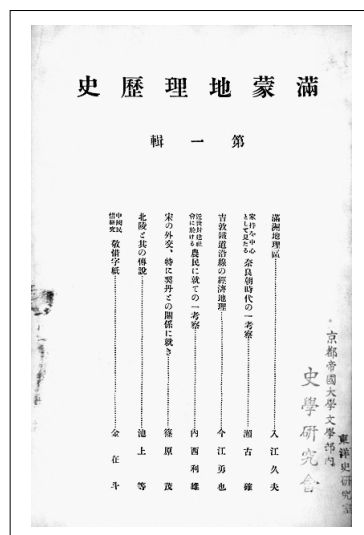 滿蒙地理歷史
第一輯
滿洲地理區………入江久夫
衆持を中心として見たる 奈良朝時代の一考察………瀨古確
吉敦鐵道沿線の經濟地理………今江勇也
近世封建社會に於ける 農民に就ての一考察………內西利雄
宋の外交、特に契丹との關係に就き………篠原茂
北陵と其の傳說………池上等
中國民情硏究 敬惜字紙………金在斗
京都帝國大學文學部內
史學硏究會
東洋史硏究室